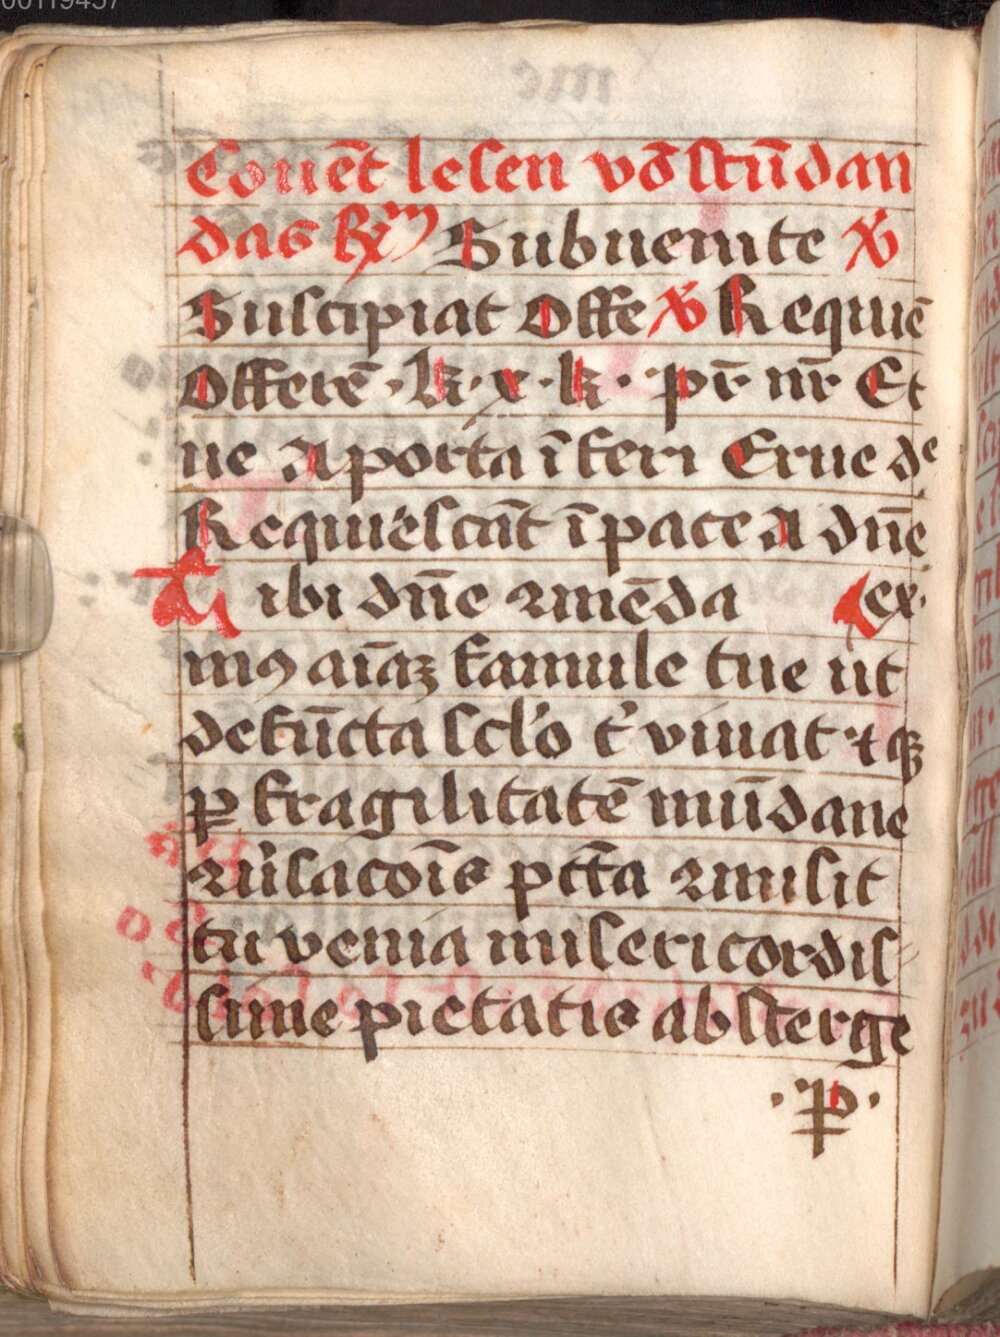 00119457
Couēt lesen vō stūdan
das Rm̄ Subuenite V
Suscipiat Offe V Requiē
Offerē · k · x · k · pr̄ nr̄ Et
ne A porta īferi Erue de
Requiescāt ī pace A dn̄e
Tibi dn̄e 2mēda Lex.
mꝯ aīaꝫ famule tue ut
defūcta sclo t' viuat · ⁊ qꝫ
ꝑ fragilitatē mūdane
2u'sacōis pctā 2misit
tu venia misericordis
sime pietatis absterge
· P ·